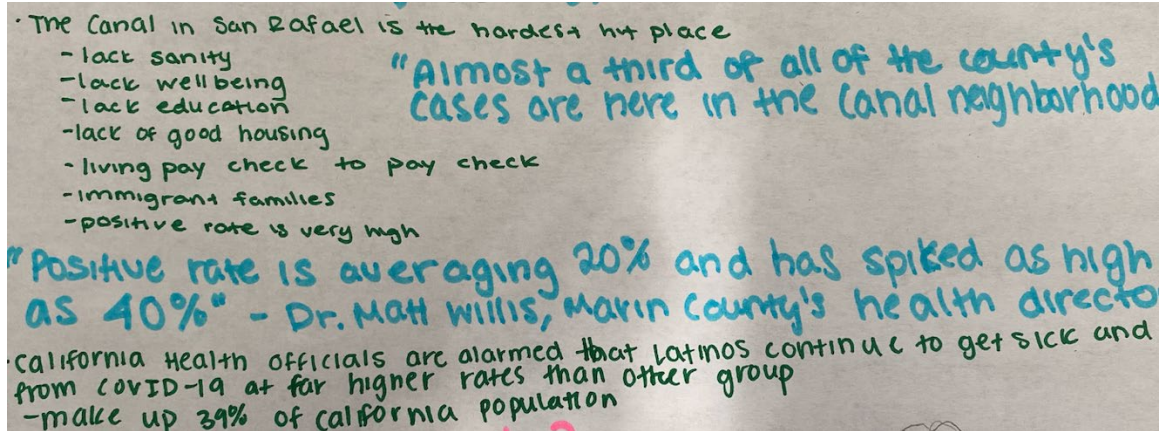 · The Canal in San Rafael is the hardest hit place
- lack sanity
- lack wellbeing
- lack education
- lack of good housing
- living pay check to pay check
- immigrant families
- positive rate is very high
"Almost a third of all of the county's
cases are here in the Canal neighborhood
"Positive rate is averaging 20% and has spiked as high
as 40%" - Dr. Matt Willis, Marin County's health directo
· California Health officials are alarmed that Latinos continue to get sick and
from COVID-19 at far higher rates than other group
- make up 39% of california population